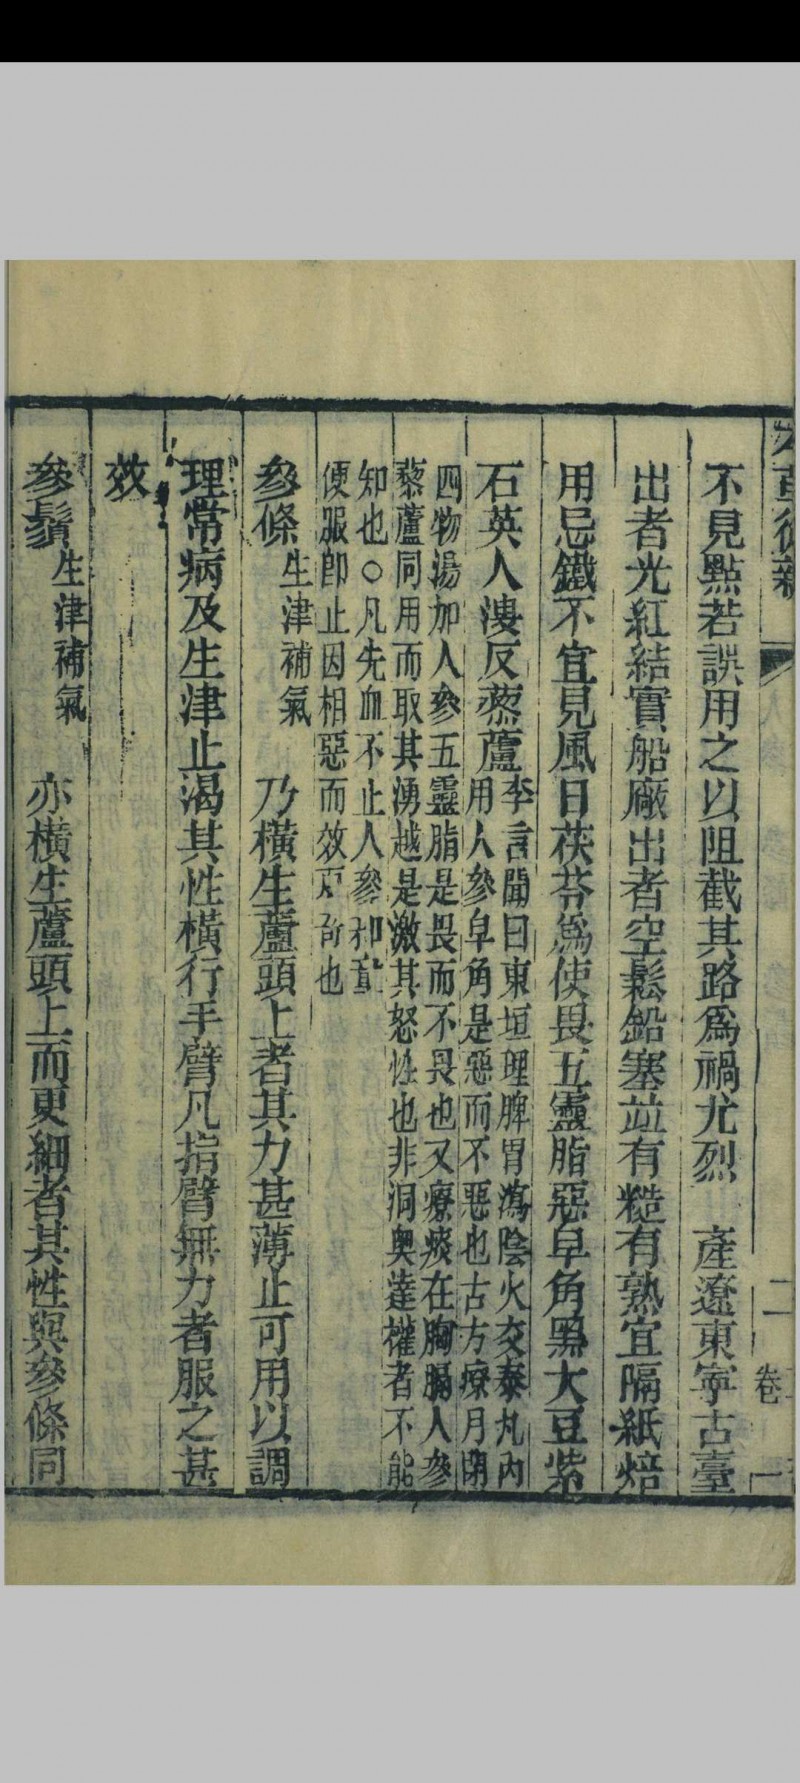 本草從新
二
卷一
不見點若誤用之以阻截其路爲禍尤烈　產遼東寧古臺
出者光紅結實船廠出者空鬆鉛塞竝有糙有熟宜隔紙焙
用忌鐵不宜見風日茯苓爲使畏五靈脂惡皁角黑大豆紫
石英人溲反藜蘆
李言聞曰東垣理脾胃瀉陰火交泰丸內
用人參皁角是惡而不惡也古方療月閉
四物湯加人參五靈脂是畏而不畏也又療痰在胸膈人參
藜蘆同用而取其湧越是激其怒性也非洞奧達權者不能
知也○凡失血不止人參和
便服卽止因相惡而效更奇也
參條
生津補氣
乃橫生蘆頭上者其力甚薄止可用以調
理常病及生津止渴其性橫行手臂凡指臂無力者服之甚
效
參鬚
生津補氣
亦橫生蘆頭上而更細者其性與參條同